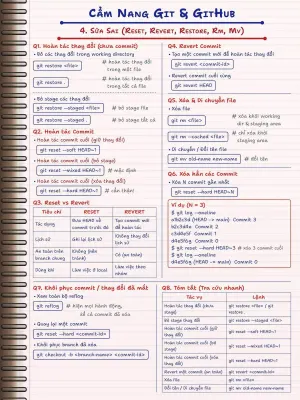 Cẩm Nang Git & GitHub
4. Sửa Sai (Reset, Revert, Restore, Rm, Mv)
Q1. Hoàn tác thay đổi (chưa commit)
• Bỏ các thay đổi trong working directory
git restore <file>
# hoàn tác thay đổi
trong một file
git restore .
# hoàn tác thay đổi
trong tất cả file
• Bỏ stage các thay đổi
git restore --staged <file>
# bỏ stage file
git restore --staged .
# bỏ stage tất cả
Q2. Hoàn tác Commit
• Hoàn tác commit cuối (giữ thay đổi)
git reset --soft HEAD~1
• Hoàn tác commit cuối (bỏ stage)
git reset --mixed HEAD~1
# mặc định
• Hoàn tác commit cuối (xóa thay đổi)
git reset --hard HEAD~1
# cẩn thận!
Q3. Reset vs Revert
Tiêu chí RESET REVERT
Tác dụng Đưa HEAD về commit trước đó Tạo commit mới để hoàn tác
Lịch sử Ghi lại lịch sử Không thay đổi lịch sử
An toàn trên nhánh chung Không (nên tránh) Có (an toàn)
Dùng khi Làm việc ở local Làm việc theo nhóm
Q4. Revert Commit
• Tạo một commit mới để hoàn tác commit
git revert <commit-id>
• Revert commit cuối cùng
git revert HEAD
Q5. Xóa & Di chuyển file
• Xóa file
git rm <file>
# xóa khỏi working
dir & staging area
git rm --cached <file>
# chỉ xóa khỏi
staging area
• Di chuyển / Đổi tên file
git mv old-name new-name
# đổi tên
Q6. Xóa hẳn các Commit
• Xóa N commit gần nhất
git reset --hard HEAD~N
Ví dụ (N = 3)
$ git log --oneline
(HEAD -> main) Commit 3
Commit 2
Commit 1
Commit 0
$ git reset --hard HEAD~3 # xóa 3 commit cuối
$ git log --oneline
(HEAD -> main) Commit 0
Q7. Khôi phục commit / thay đổi đã mất
• Xem toàn bộ reflog
git reflog
# hiện mọi hành động,
kể cả commit đã xóa
• Quay lại một commit
git reset --hard <commit-id>
• Khôi phục branch đã xóa
git checkout -b <branch-name> <commit-id>
Q8. Tóm tắt (Tra cứu nhanh)
Tác vụ Lệnh
Hoàn tác thay đổi (chưa commit) git restore <file> / git restore .
Bỏ stage thay đổi git restore --staged <file>
Hoàn tác commit cuối (giữ thay đổi) git reset --soft HEAD~1
Hoàn tác commit cuối (bỏ stage) git reset --mixed HEAD~1
Hoàn tác commit cuối (xóa thay đổi) git reset --hard HEAD~1
Revert một commit (an toàn) git revert <commit-id>
Xóa file git rm <file>
Đổi tên / Di chuyển file git mv old-name new-name